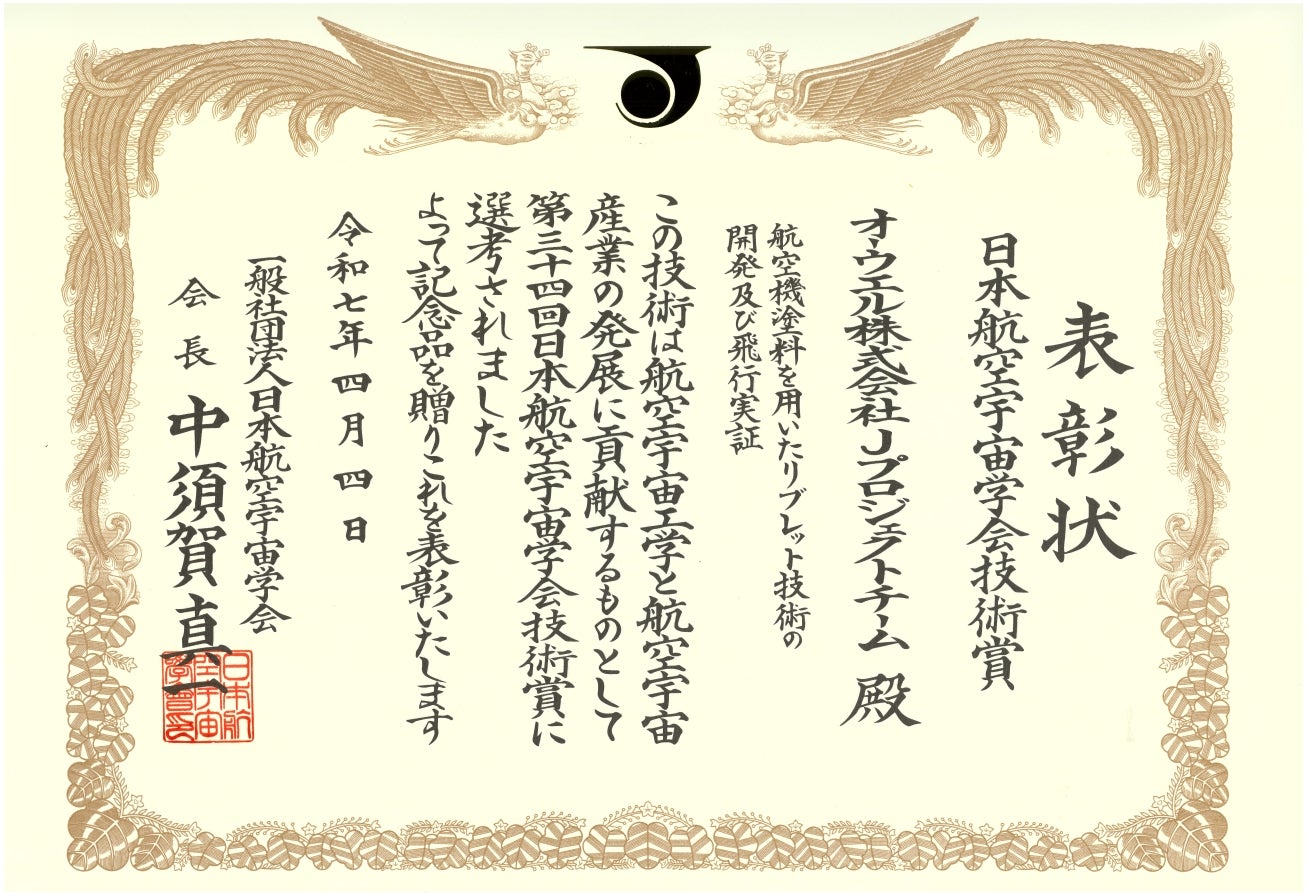 表彰状
日本航空宇宙学会技術賞
オーウエル株式会社Jプロジェクトチーム 殿
航空機塗料を用いたリブレット技術の
開発及び飛行実証
この技術は航空宇宙工学と航空宇宙
産業の発展に貢献するものとして
第三十四回日本航空宇宙学会技術賞に
選考されました
よって記念品を贈りこれを表彰いたします
令和七年四月四日
一般社団法人日本航空宇宙学会
会長 中須賀真一
日本航
空宇宙
学會之印